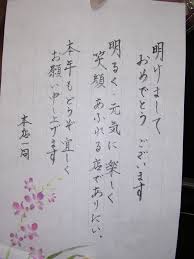 明けまして
おめでとうございます
明るく元気に楽しく
笑顔あふれる店でありたい。
本年もどうぞ宜しく
お願い申し上げます
本店一同